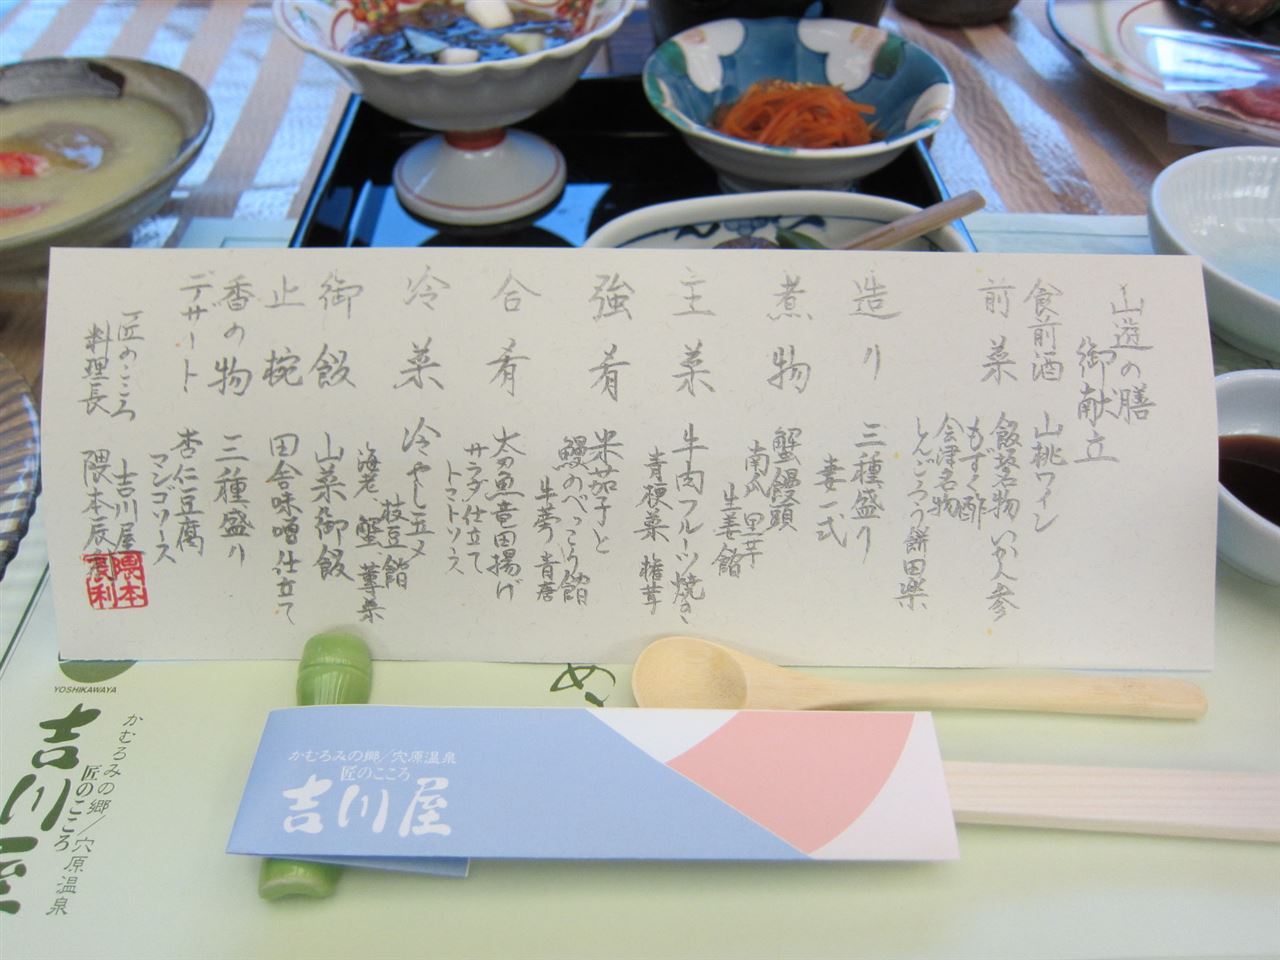 山遊の膳
御献立
食前酒 山桃ワイン
前菜 飯盛名物いか人参
もずく酢
会津名物
しんごろう餅田楽
造り 三種盛り
妻一式
煮物 蟹饅頭
南瓜 里芋
生姜餡
主菜 牛肉フルーツ焼き
青梗菜 椎茸
強肴 米茄子と
鰻のべっこう餡
牛蒡 青唐
合肴 太刀魚竜田揚げ
サラダ仕立て
トマトソース
冷菜 冷やし五〆
枝豆餡
海老 蟹 蓴菜
御飯 山菜御飯
止椀 田舎味噌仕立て
香の物 三種盛り
デザート 杏仁豆腐
マンゴソース
匠のこころ 吉川屋
料理長 隈本辰利
隈本
辰利
YOSHIKAWAYA
かむろみの郷/穴原温泉
匠のこころ
吉川屋
め
かむろみの郷/穴原温泉
匠のこころ
吉川屋